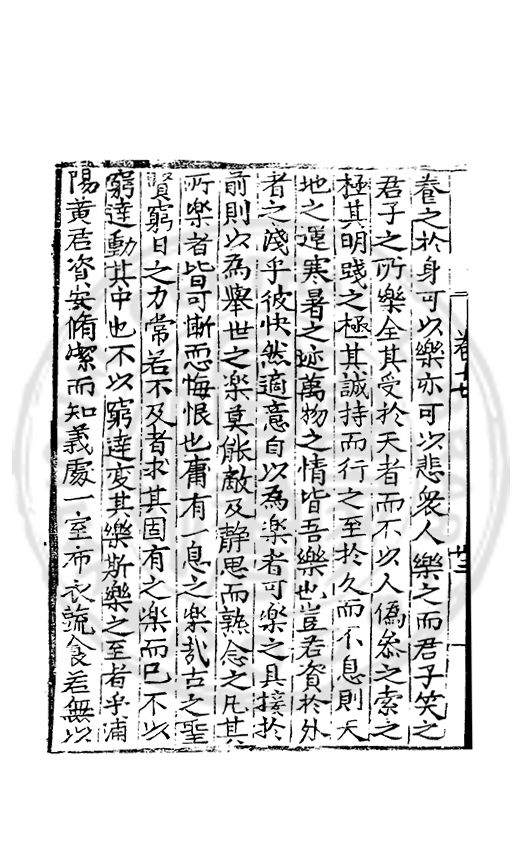 養之於身可以樂亦可以悲衆人樂之而君子笑之
君子之所樂全其受於天者而不以人偽叅之索之
極其明踐之極其誠持而行之至於久而不息則天
地之運寒暑之迹萬物之情皆吾樂也豈若資於外
者之淺乎彼快然適意自以為楽者可楽之具接於
前則以為舉世之楽莫能敵及静思而熟念之凡其
所樂者皆可慚而悔恨也庸有一息之楽哉古之聖
賢窮日之力常若不及者求其固有之楽而已不以
窮達動其中也不以窮達変其樂斯樂之至者乎浦
陽黄君資安脩潔而知義處一室布衣蔬食若無以
卷十七
廿三